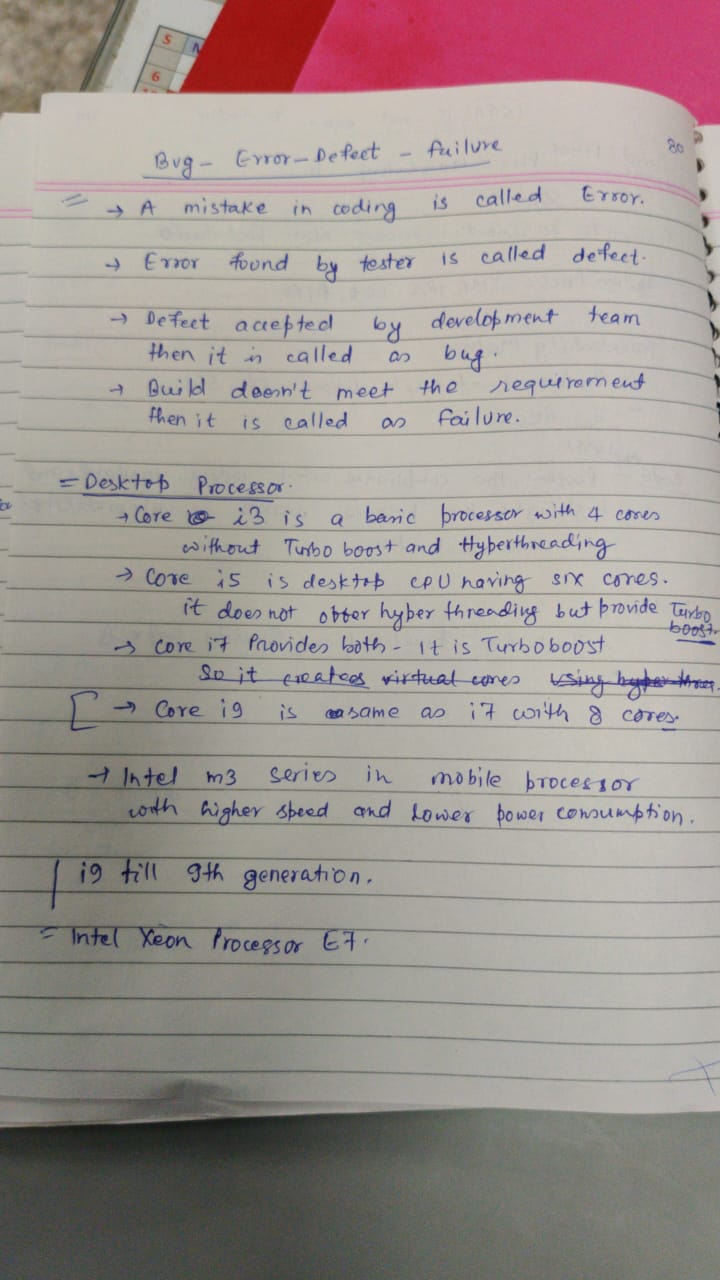 5 N
6
80
Bug - Error - Defect - failure
= → A mistake in coding is called Error.
→ Error found by tester is called defect.
→ Defect accepted by development team
then it is called as bug.
→ Build doesn't meet the requirement
then it is called as failure.
= Desktop Processor.
→ Core i3 is a basic processor with 4 cores
without Turbo boost and Hyperthreading
→ Core i5 is desktop CPU having six cores.
it does not offer hyper threading but provide Turbo
boost.
→ core i7 Provides both - It is Turboboost
So it creates virtual cores using hyper threa.
[ → Core i9 is same as i7 with 8 cores.
→ Intel m3 series in mobile processor
with higher speed and Lower power consumption.
i9 till 9th generation.
= Intel Xeon Processor E7.